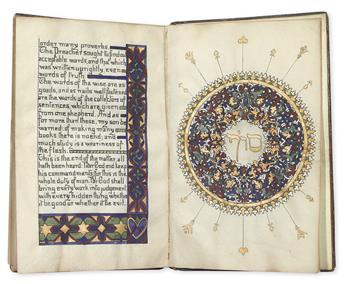 order many proverbs.
The Preacher sought to find out
acceptable words, and that which
was written uprightly, even
words of truth.
The words of the wise are as
goads, and as nails well fastened
are the words of the collectors of
sentences, which are given
from one shepherd. And as
for more than these, my son, be
warned: of making many
books there is no end; and
much study is a weariness of
the flesh.
This is the end of the matter all
hath been heard: fear God and keep
his commandments for this is the
whole duty of man. For God shall
bring every work into judgment
with every hidden thing whether
it be good or whether it be evil.
סוף